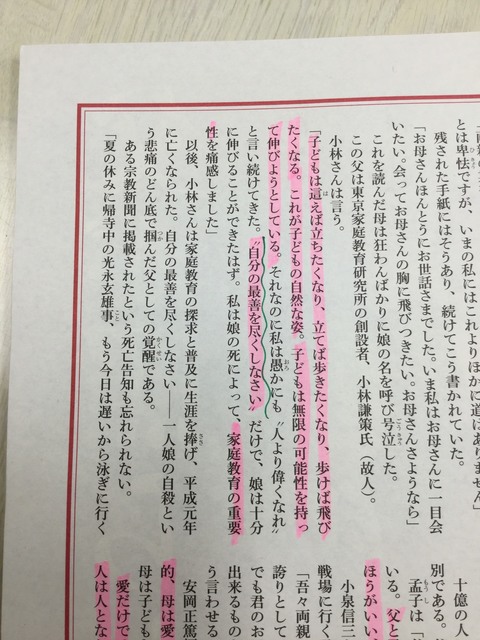 とは卑怯ですが、いまの私にはこれよりほかに道はありません」
残された手紙にはそうあり、続けてこう書かれていた。
「お母さんほんとうにお世話さまでした。いま私はお母さんに一目会
いたい。会ってお母さんの胸に飛びつきたい。お母さんさようなら」
これを読んだ母は狂わんばかりに娘の名を呼び号泣した。
この父は東京家庭教育研究所の創設者、小林謙策氏（故人）。
小林さんは言う。
「子どもは這えば立ちたくなり、立てば歩きたくなり、歩けば飛び
たくなる。これが子どもの自然な姿。子どもは無限の可能性を持っ
て伸びようとしている。それなのに私は愚かにも〝人より偉くなれ〟
と言い続けてきた。〝自分の最善を尽くしなさい〟だけで、娘は十分
に伸びることができたはず。私は娘の死によって、家庭教育の重要
性を痛感しました」
以後、小林さんは家庭教育の探求と普及に生涯を捧げ、平成元年
に亡くなられた。自分の最善を尽くしなさい――一人娘の自殺とい
う悲痛のどん底で掴んだ父としての覚醒である。
ある宗教新聞に掲載されたという死亡告知も忘れられない。
「夏の休みに帰寺中の光永玄雄事 もう今日は遅いから泳ぎに行く
十億の人
別である。
孟子は「
いる。父と
ほうがいい
小泉信三
戦場に行く
「吾々両親
誇りとして
でも君のお
出来るもの
う言わせる
安岡正篤
的、母は愛
母は子ども
愛だけで
人は人とな